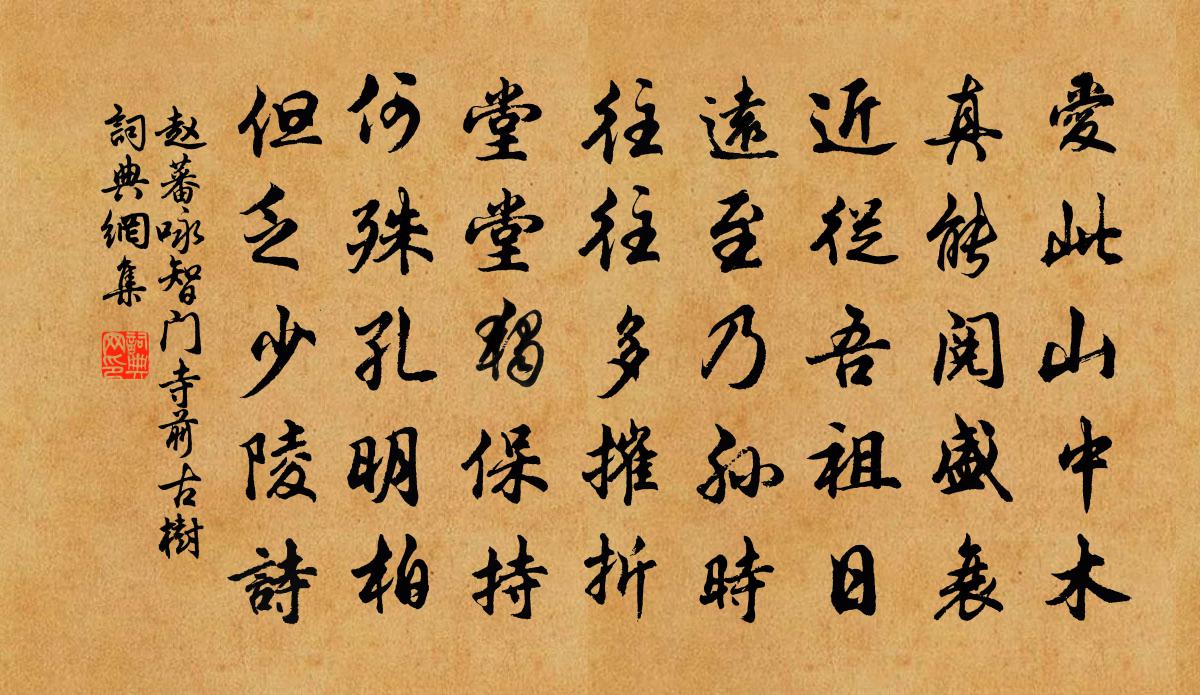 愛此山中木
真能閱盛衰
近從吾祖日
遠至乃孫時
往往多摧折
堂堂獨保持
何殊孔明柏
但乏少陵詩
赵蕃咏智门寺前古樹
詞典網集
詞典网印